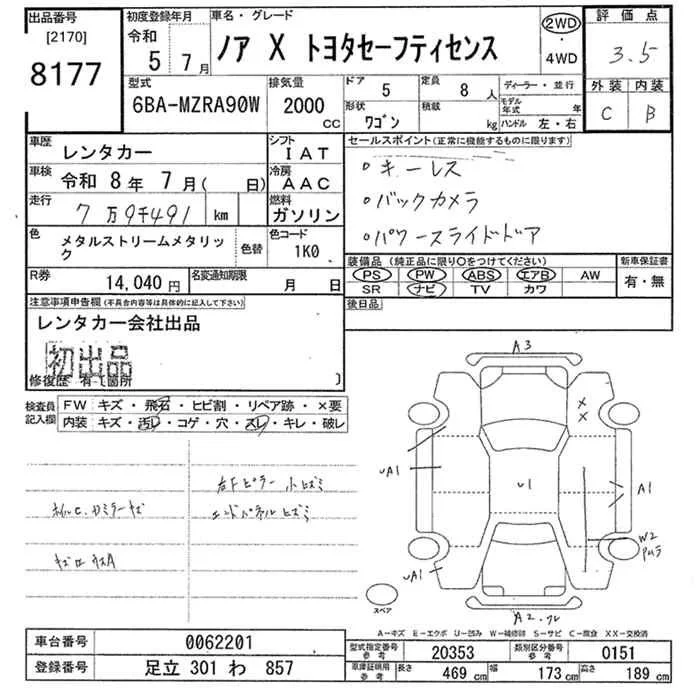 出品番号
[2170]
8177
初度登録年月
令和
5 7月
車名・グレード
ノア X トヨタセーフティセンス
2WD
・
4WD
評価点
3.5
外装 内装
C B
型式
6BA-MZRA90W
排気量
2000
CC
ドア
5
定員
8 人
形状
ワゴン
積載
kg
ディーラー・並行
モデル年式 年
ハンドル 左・右
車歴
レンタカー
シフト
IAT
車検
令和 8年 7月( 日)
冷房
AAC
走行
7万9千491 km
燃料
ガソリン
色
メタルストリームメタリック
色替
色コード
1K0
R券
14,040円
名変通知期限
月 日
セールスポイント(正常に機能するものに限ります)
・キーレス
・バックカメラ
・パワースライドドア
装備品 (純正品に限り○をつけてください)
PS PW ABS エアB AW
SR ナビ TV カワ
新車保証書
有・無
後日品
注意事項申告欄(不具合内容等は具体的に記入して下さい)
レンタカー会社出品
初出品
修復歴 有-(箇所 )
検査員
記入欄
FW キズ・飛石・ヒビ割・リペア跡・×要
内装 キズ・汚レ・コゲ・穴・スレ・キレ・破レ
右Fピラー小ヒズミ
エンドパネルヒズミ
A3
×
×
UA1
U1
A1
W2
UA1
A2
スペア
A-キズ E-エクボ U-凹み W-補修跡 S-サビ C-腐食 XX-交換済
車台番号
0062201
登録番号
足立 301 わ 857
型式指定番号
参考
20353
類別区分番号
参考
0151
車庫証明用
参考
長さ
469 cm
幅
173 cm
高さ
189 cm